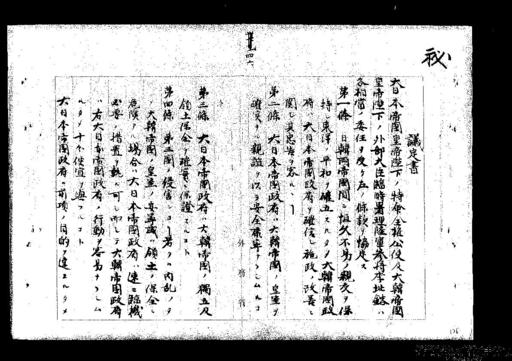 秘
議定書
大日本帝國皇帝陛下ノ特命全權公使及大韓帝國
皇帝陛下ノ外部大臣臨時署理陸軍參將李址鎔ハ
各相當ノ委任ヲ受ケ左ノ條款ヲ協定ス
第一條 日韓兩帝國間ニ恒久不易ノ親交ヲ保
持シ東洋ノ平和ヲ確立スルタメ大韓帝國政
府ハ大日本帝國政府ヲ確信シ施政ノ改善ニ
關シ其忠告ヲ容ルヽコト
第二條 大日本帝國政府ハ大韓帝國ノ皇室ヲ
確實ナル親誼ヲ以テ安全康寧ナラシムルコト
第三條 大日本帝國政府ハ大韓帝國ノ獨立及
領土保全ヲ確實ニ保證スルコト
第四條 第三國ノ侵害ニ若クハ内亂ノタメ
大韓帝國ノ皇室ノ安寧或ハ領土ノ保全ニ
危險アル場合ハ大日本帝國政府ハ速ニ臨機
必要ノ措置ヲ執ル可シ而シテ大韓帝國政府
ハ右大日本帝國政府ノ行動ヲ容易ナラシム
ル爲メ十分便宜ヲ與フルコト
大日本帝國政府ハ前項ノ目的ヲ達スルタメ
外務省